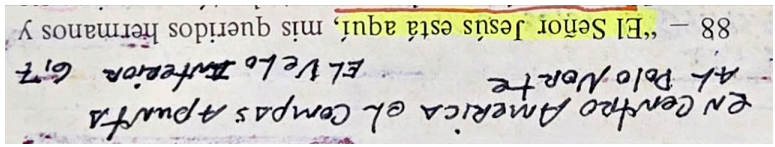 EN CENTRO AMERICA EL COMPAS APUNTA
AL POLO NORTE EL VELO INTERIOR 6,7
88 – “El Señor Jesús está aquí, mis queridos hermanos y